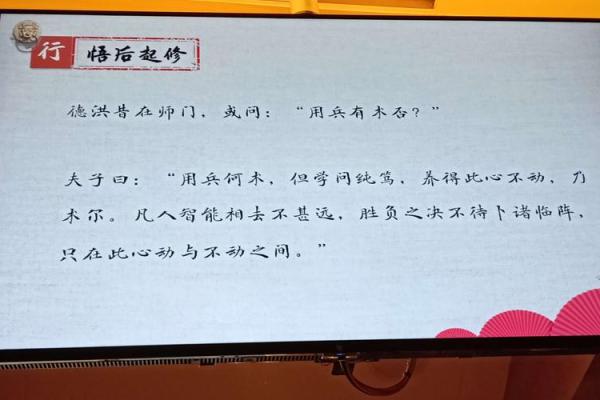 行 悟后起修
德洪昔在师门，或问：“用兵有术否？”
夫子曰：“用兵何术，但学问纯笃，养得此心不动，乃
术尔。凡人智能相去不甚远，胜负之决不待卜诸临阵，
只在此心动与不动之间。”